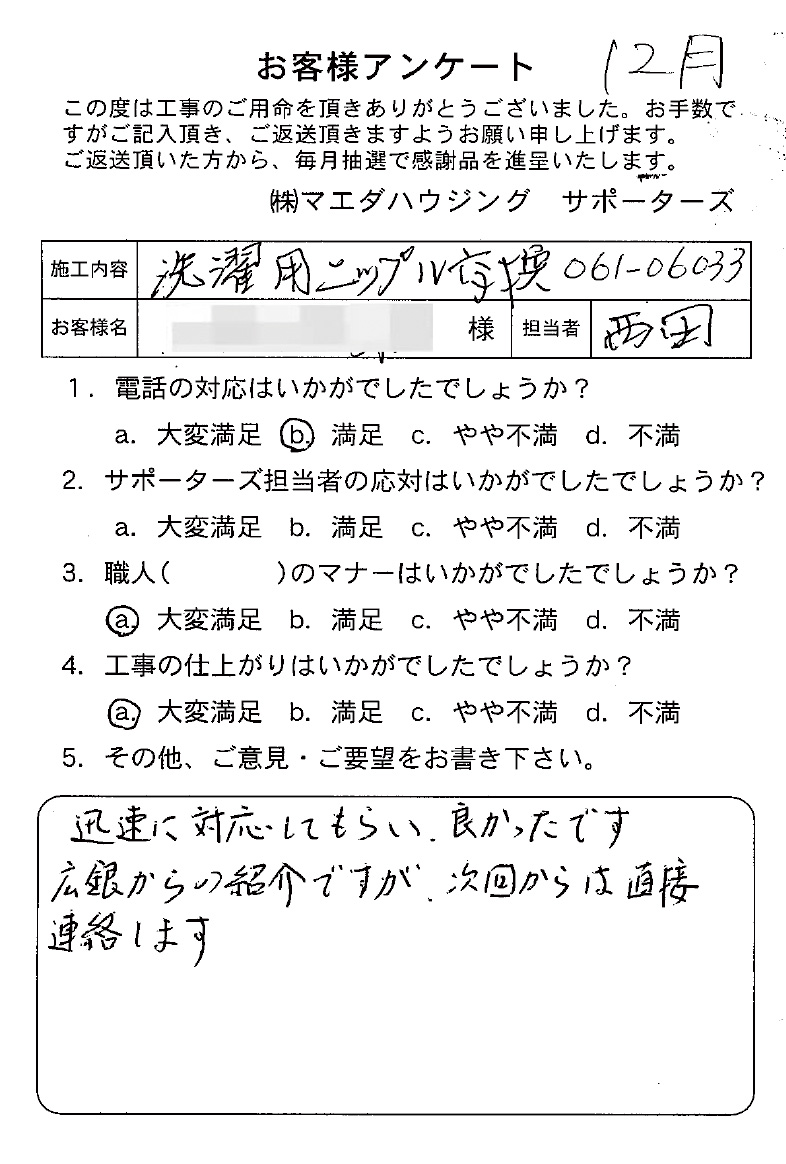 お客様アンケート 12月
この度は工事のご用命を頂きありがとうございました。お手数で
すがご記入頂き、ご返送頂きますようお願い申し上げます。
ご返送頂いた方から、毎月抽選で感謝品を進呈いたします。
㈱マエダハウジング サポーターズ
施工内容 洗濯用ニップル 061-06033
お客様名 様 担当者 西田
1. 電話の対応はいかがでしたでしょうか？
a. 大変満足 b. 満足 c. やや不満 d. 不満
2. サポーターズ担当者の応対はいかがでしたでしょうか？
a. 大変満足 b. 満足 c. やや不満 d. 不満
3. 職人( )のマナーはいかがでしたでしょうか？
a. 大変満足 b. 満足 c. やや不満 d. 不満
4. 工事の仕上がりはいかがでしたでしょうか？
a. 大変満足 b. 満足 c. やや不満 d. 不満
5. その他、ご意見・ご要望をお書き下さい。
迅速に対応してもらい、良かったです
広銀からの紹介ですが、次回からは直接
連絡します